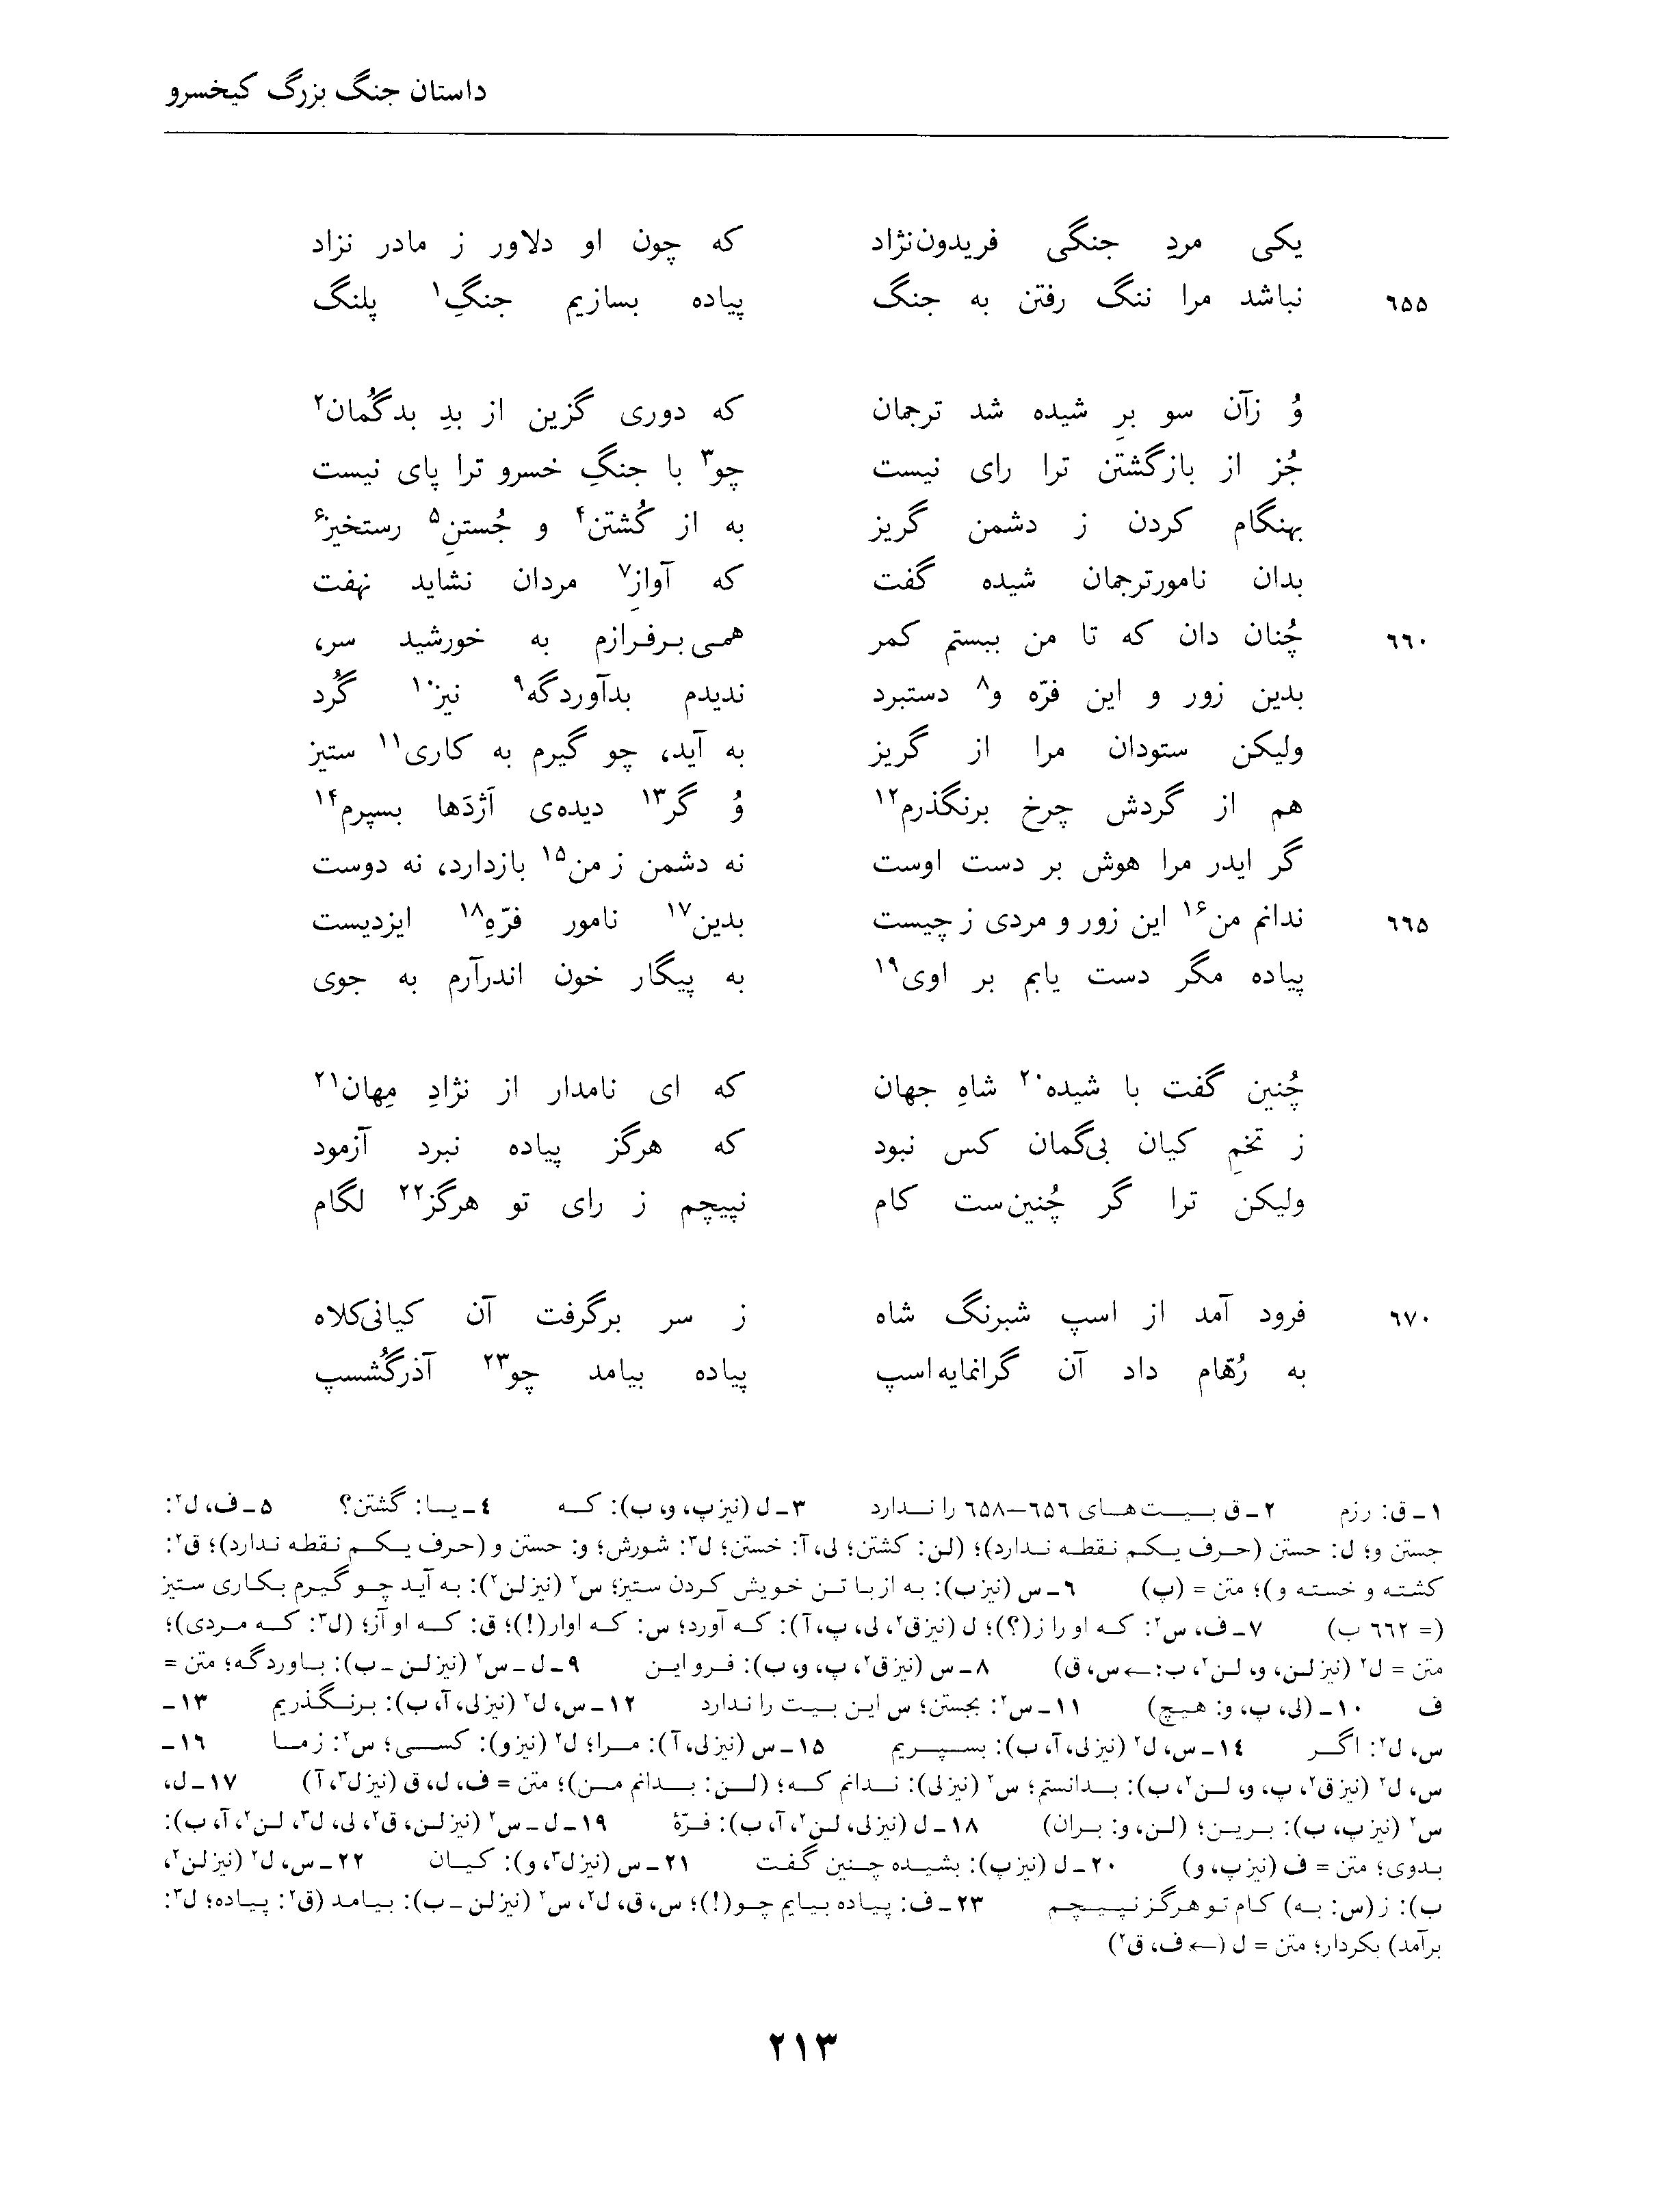 داستان جنگ بزرگ کیخسرو
یکی مردِ جنگی فریدون‌نژاد که چون او دلاور ز مادر نزاد
۶۵۵ نباشد مرا ننگ رفتن به جنگ پیاده بسازیم جنگِ۱ پلنگ
وُ زآن سو برِ شیده شد ترجمان که دوری گزین از بدِ بدگُمان۲
جُز از بازگشتن ترا رای نیست چو۳ با جنگِ خسرو ترا پای نیست
بهنگام کردن ز دشمن گریز به از کُشتن۴ و جُستنِ۵ رستخیز۶
بدان نامورترجمان شیده گفت که آوازِ۷ مردان نشاید نهفت
۶۶۰ چُنان دان که تا من ببستم کمر همی‌برفرازم به خورشید سر،
بدین زور و این فرّه و۸ دستبرد ندیدم بدآوردگه۹ نیز۱۰ گُرد
ولیکن ستودان مرا از گریز به آید، چو گیرم به کاری۱۱ ستیز
هم از گردش چرخ برنگذرم۱۲ وُ گر۱۳ دیده‌ی اَژدَها بسپرم۱۴
گر ایدر مرا هوش بر دست اوست نه دشمن ز من۱۵ بازدارد، نه دوست
۶۶۵ ندانم من۱۶ این زور و مردی ز چیست بدین۱۷ نامور فرّهِ۱۸ ایزدیست
پیاده مگر دست یابم بر اوی۱۹ به پیگار خون اندرآرم به جوی
چُنین گفت با شیده۲۰ شاهِ جهان که ای نامدار از نژادِ مِهان۲۱
ز تخمِ کیان بی‌گمان کس نبود که هرگز پیاده نبرد آزمود
ولیکن ترا گر چُنین‌ست کام نپیچم ز رای تو هرگز۲۲ لگام
۶۷۰ فرود آمد از اسپ شبرنگ شاه ز سر برگرفت آن کیانی‌کلاه
به رُهّام داد آن گرانمایه‌اسپ پیاده بیامد چو۲۳ آذرگُشسپ
۱ـ ق: رزم ۲ـ ق بیت‌های ۶۵۶—۶۵۸ را ندارد ۳ـ ل (نیز پ، و، ب): که ۴ـ یا: گشتن؟ ۵ـ ف، ل۲:
جستن و؛ ل: حستن (حرف یکم نقطه ندارد)؛ (لن: کشتن؛ لی، آ: خستن؛ ل۳: شورش؛ و: حستن و (حرف یکم نقطه ندارد)؛ ق۲:
کشته و خسته و)؛ متن = (پ) ۶ـ س (نیز ب): به از با تن خویش کردن ستیز؛ س۲ (نیز لن۲): به آید چو گیرم بکاری ستیز
(= ۶۶۲ ب) ۷ـ ف، س۲: که او را ز(؟)؛ ل (نیز ق۲، لی، پ، آ): که آورد؛ س: که اوار(!)؛ ق: که او آز؛ (ل۳: که مردی)؛
متن = ل۲ (نیز لن، و، لن۲، ب: ← س، ق) ۸ـ س (نیز ق۲، پ، و، ب): فر و این ۹ـ ل ـ س۲ (نیز لن ـ ب): باوردگه؛ متن =
ف ۱۰ـ (لی، پ، و: هیچ) ۱۱ـ س۲: بجستن؛ س این بیت را ندارد ۱۲ـ س، ل۲ (نیز لی، آ، ب): برنگذریم ۱۳ـ
س، ل۲: اگر ۱۴ـ س، ل۲ (نیز لی، آ، ب): بسپریم ۱۵ـ س (نیز لی، آ): مرا؛ ل۲ (نیز و): کسی؛ س۲: ز ما ۱۶ـ
س، ل۲ (نیز ق۲، پ، و، لن۲، ب): بدانستم؛ س۲ (نیز لی): ندانم که؛ (لن: بدانم من)؛ متن = ف، ل، ق (نیز ل۳، آ) ۱۷ـ ل،
س۲ (نیز پ، ب): برین؛ (لن، و: بران) ۱۸ـ ل (نیز لی، لن۲، آ، ب): فرّهٔ ۱۹ـ ل ـ س۲ (نیز لن، ق۲، لی، ل۳، لن۲، آ، ب):
بدوی؛ متن = ف (نیز پ، و) ۲۰ـ ل (نیز پ): بشیده چنین گفت ۲۱ـ س (نیز ل۳، و): کیان ۲۲ـ س، ل۲ (نیز لن۲،
ب): ز (س: به) کام تو هرگز نپیچم ۲۳ـ ف: پیاده بیایم چو(!)؛ س، ق، ل۲، س۲ (نیز لن ـ ب): بیامد (ق۲: پیاده؛ ل۳:
برآمد) بکردار؛ متن = ل (← ف، ق۲)
۲۱۳